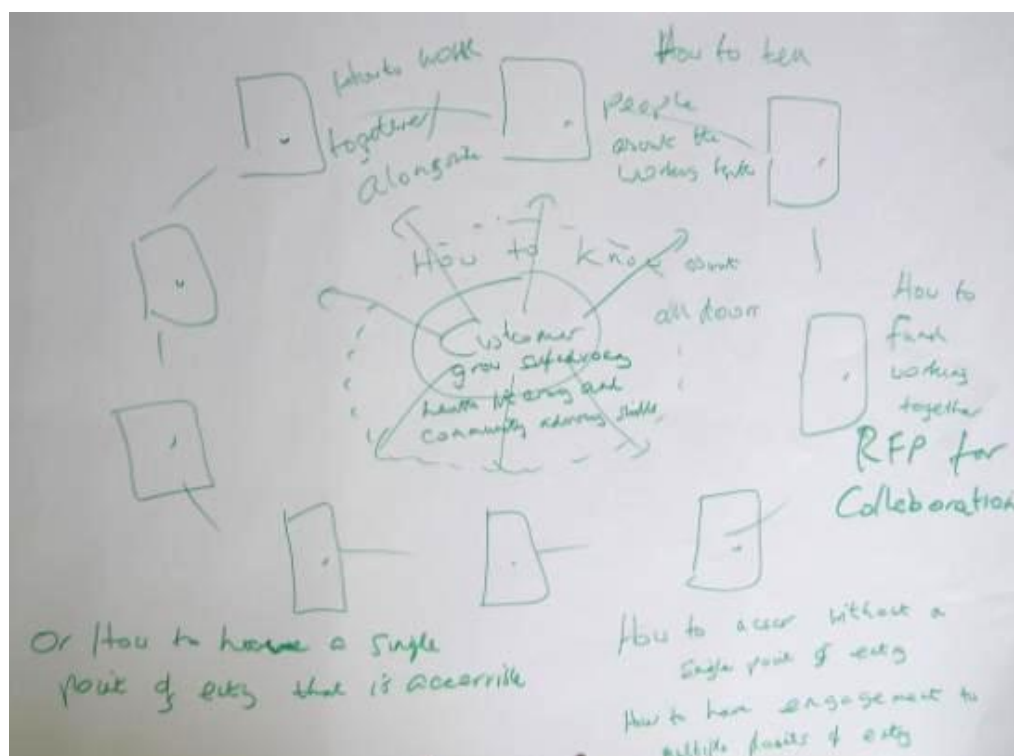 How to work
together/
alongside
How to tell
people
about the
working together
How to know about
all doors
Customer
grow self advocacy
health literacy and
community advisory skills
How to
fund
working
together
RFP for
Collaboration
Or How to have a single
point of entry that is accessible
How to access without a
single point of entry
How to have engagement to
multiple points of entry